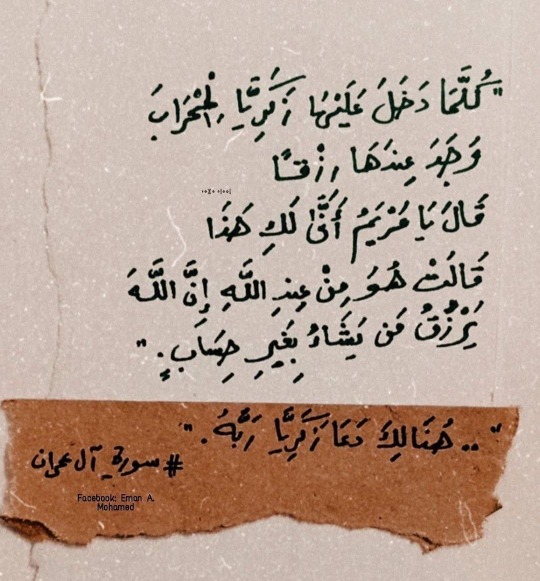 "كُلَّمَا دَخَلَ عَلَيْهَا زَكَرِيَّا الْمِحْرَابَ
وَجَدَ عِندَهَا رِزْقًا
قَالَ يَا مَرْيَمُ أَنَّىٰ لَكِ هَذَا
قَالَتْ هُوَ مِنْ عِندِ اللَّهِ إِنَّ اللَّهَ
يَرْزُقُ مَن يَشَاءُ بِغَيرِ حِسَابٍ."
".. هُنَالِكَ دَعَا زَكَرِيَّا رَبَّهُ."
#سورة آل عمران
Facebook: Eman A.
Mohamed